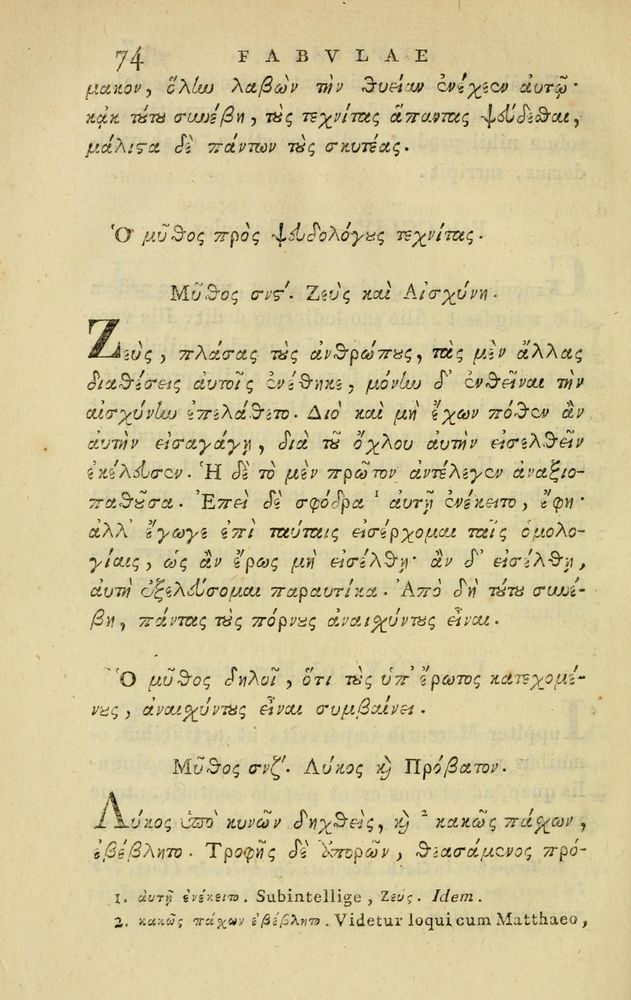 74 FABVLAE
μακον, ὅλην λαβὼν τὴν θυείαν ἐνέχεεν αὐτῷ·
κἀκ τούτου συνέβη, τοὺς τεχνίτας ἅπαντας ψεύδεσθαι,
μάλιστα δὲ πάντων τοὺς σκυτέας.
Ὁ μῦθος πρὸς ψευδολόγους τεχνίτας.
Μῦθος σνς΄. Ζεὺς καὶ Αἰσχύνη.
Ζεὺς, πλάσας τοὺς ἀνθρώπους, τὰς μὲν ἄλλας
διαθέσεις αὐτοῖς ἐνέθηκε, μόνην δ' ἐνθεῖναι τὴν
αἰσχύνην ἐπελάθετο. Διὸ καὶ μὴ ἔχων πόθεν ἂν
αὐτὴν εἰσαγάγῃ, διὰ τοῦ ὄχλου αὐτὴν εἰσελθεῖν
ἐκέλευσεν. Ἡ δὲ τὸ μὲν πρῶτον ἀντέλεγεν ἀναξιο-
παθοῦσα. Ἐπεὶ δὲ σφόδρα ¹ αὐτῇ ἐνέκειτο, ἔφη·
ἀλλ' ἔγωγε ἐπὶ ταύταις εἰσέρχομαι ταῖς ὁμολο-
γίαις, ὡς ἂν ἔρως μὴ εἰσέλθῃ· ἂν δ' εἰσέλθῃ,
αὐτὴ ἐξελεύσομαι παραυτίκα. Ἀπὸ δὴ τούτου συνέ-
βη, πάντας τοὺς πόρνους ἀναισχύντους εἶναι.
Ὁ μῦθος δηλοῖ, ὅτι τοὺς ὑπ' ἔρωτος κατεχομέ-
νους, ἀναισχύντους εἶναι συμβαίνει.
Μῦθος σνζ΄. Λύκος καὶ Πρόβατον.
Λύκος ὑπὸ κυνῶν δηχθεὶς, καὶ ² κακῶς πάσχων,
ἐβέβλητο. Τροφῆς δὲ ἀπορῶν, θεασάμενος πρό-
1. αὐτῇ ἐνέκειτο. Subintellige, Ζεύς. Idem.
2. κακῶς πάσχων ἐβέβλητο. Videtur loqui cum Matthaeo,